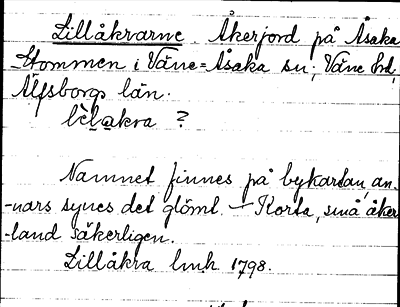 Lillåkrarne Åkerjord på Åsaka
Stommen i Väne=Åsaka sn; Väne hd,
Älfsborgs län.
lèlakra ?
Namnet finnes på bykartan, an-
-nars synes det glömt. - Korta, små åker-
-land säkerligen.
Lillåkra lmh 1798.